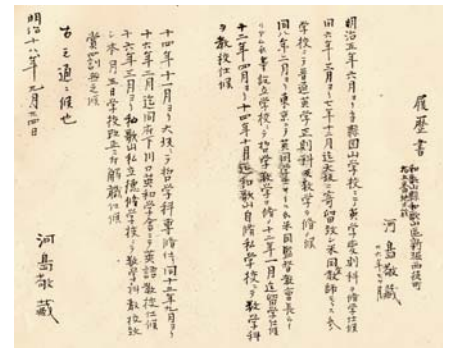 履歴書
和歌山縣和歌山区新堀西横町
河島敬蔵
明治五年六月ヨリ縣岡山学校ニテ英学変則科ヲ修学仕候
同六年三月ヨリ七年十二月迄大坂ニ寄留致シ米国教師
学校ニテ普通英学正則科及数学ヲ修メ候
同八年二月ヨリ東京ニテ米国監督教会長
設立学校ニテ哲学数学ヲ修メ十二年一月迄留学仕候
十二年四月ヨリ十四年十月迄和歌山自脩私学校ニテ数学科
ヲ教授仕候
十四年十一月ヨリ大坂ニテ哲学科専脩仕同十五年九月ヨリ
十六年二月迄同府下川口英和学舎ニテ英語教授仕候
十六年三月ヨリ和歌山私立徳脩学校ニテ数学科教授致
シ本月五日学校改正ニ付解職仕候
賞罰無之候
右之通ニ候也
明治十八年九月廿四日
河島敬蔵